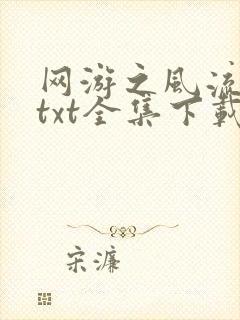 网游之风流
txt全集下载
宋濂